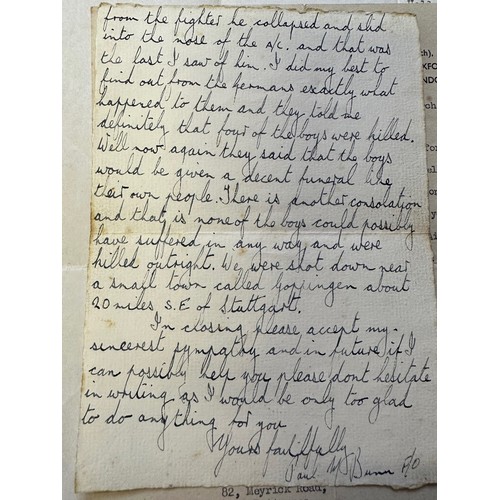 from the fighter he collapsed and slid
into the nose of the a/c. and that was
the last I saw of him. I did my best to
find out from the germans exactly what
happened to them and they told me
definitely that four of the boys were killed.
Well now again they said that the boys
would be given a decent funeral like
their own people. There is another consolation
and that is none of the boys could possibly
have suffered in any way and were
killed outright. We were shot down near
a small town called Goppingen about
20 miles S.E of Stuttgart.
In closing please accept my
sincerest sympathy and in future if I
can possibly help you please dont hesitate
in writing as I would be only too glad
to do anything for you
Yours faithfully
Paul M Bunn F/O
82, Meyrick Road,